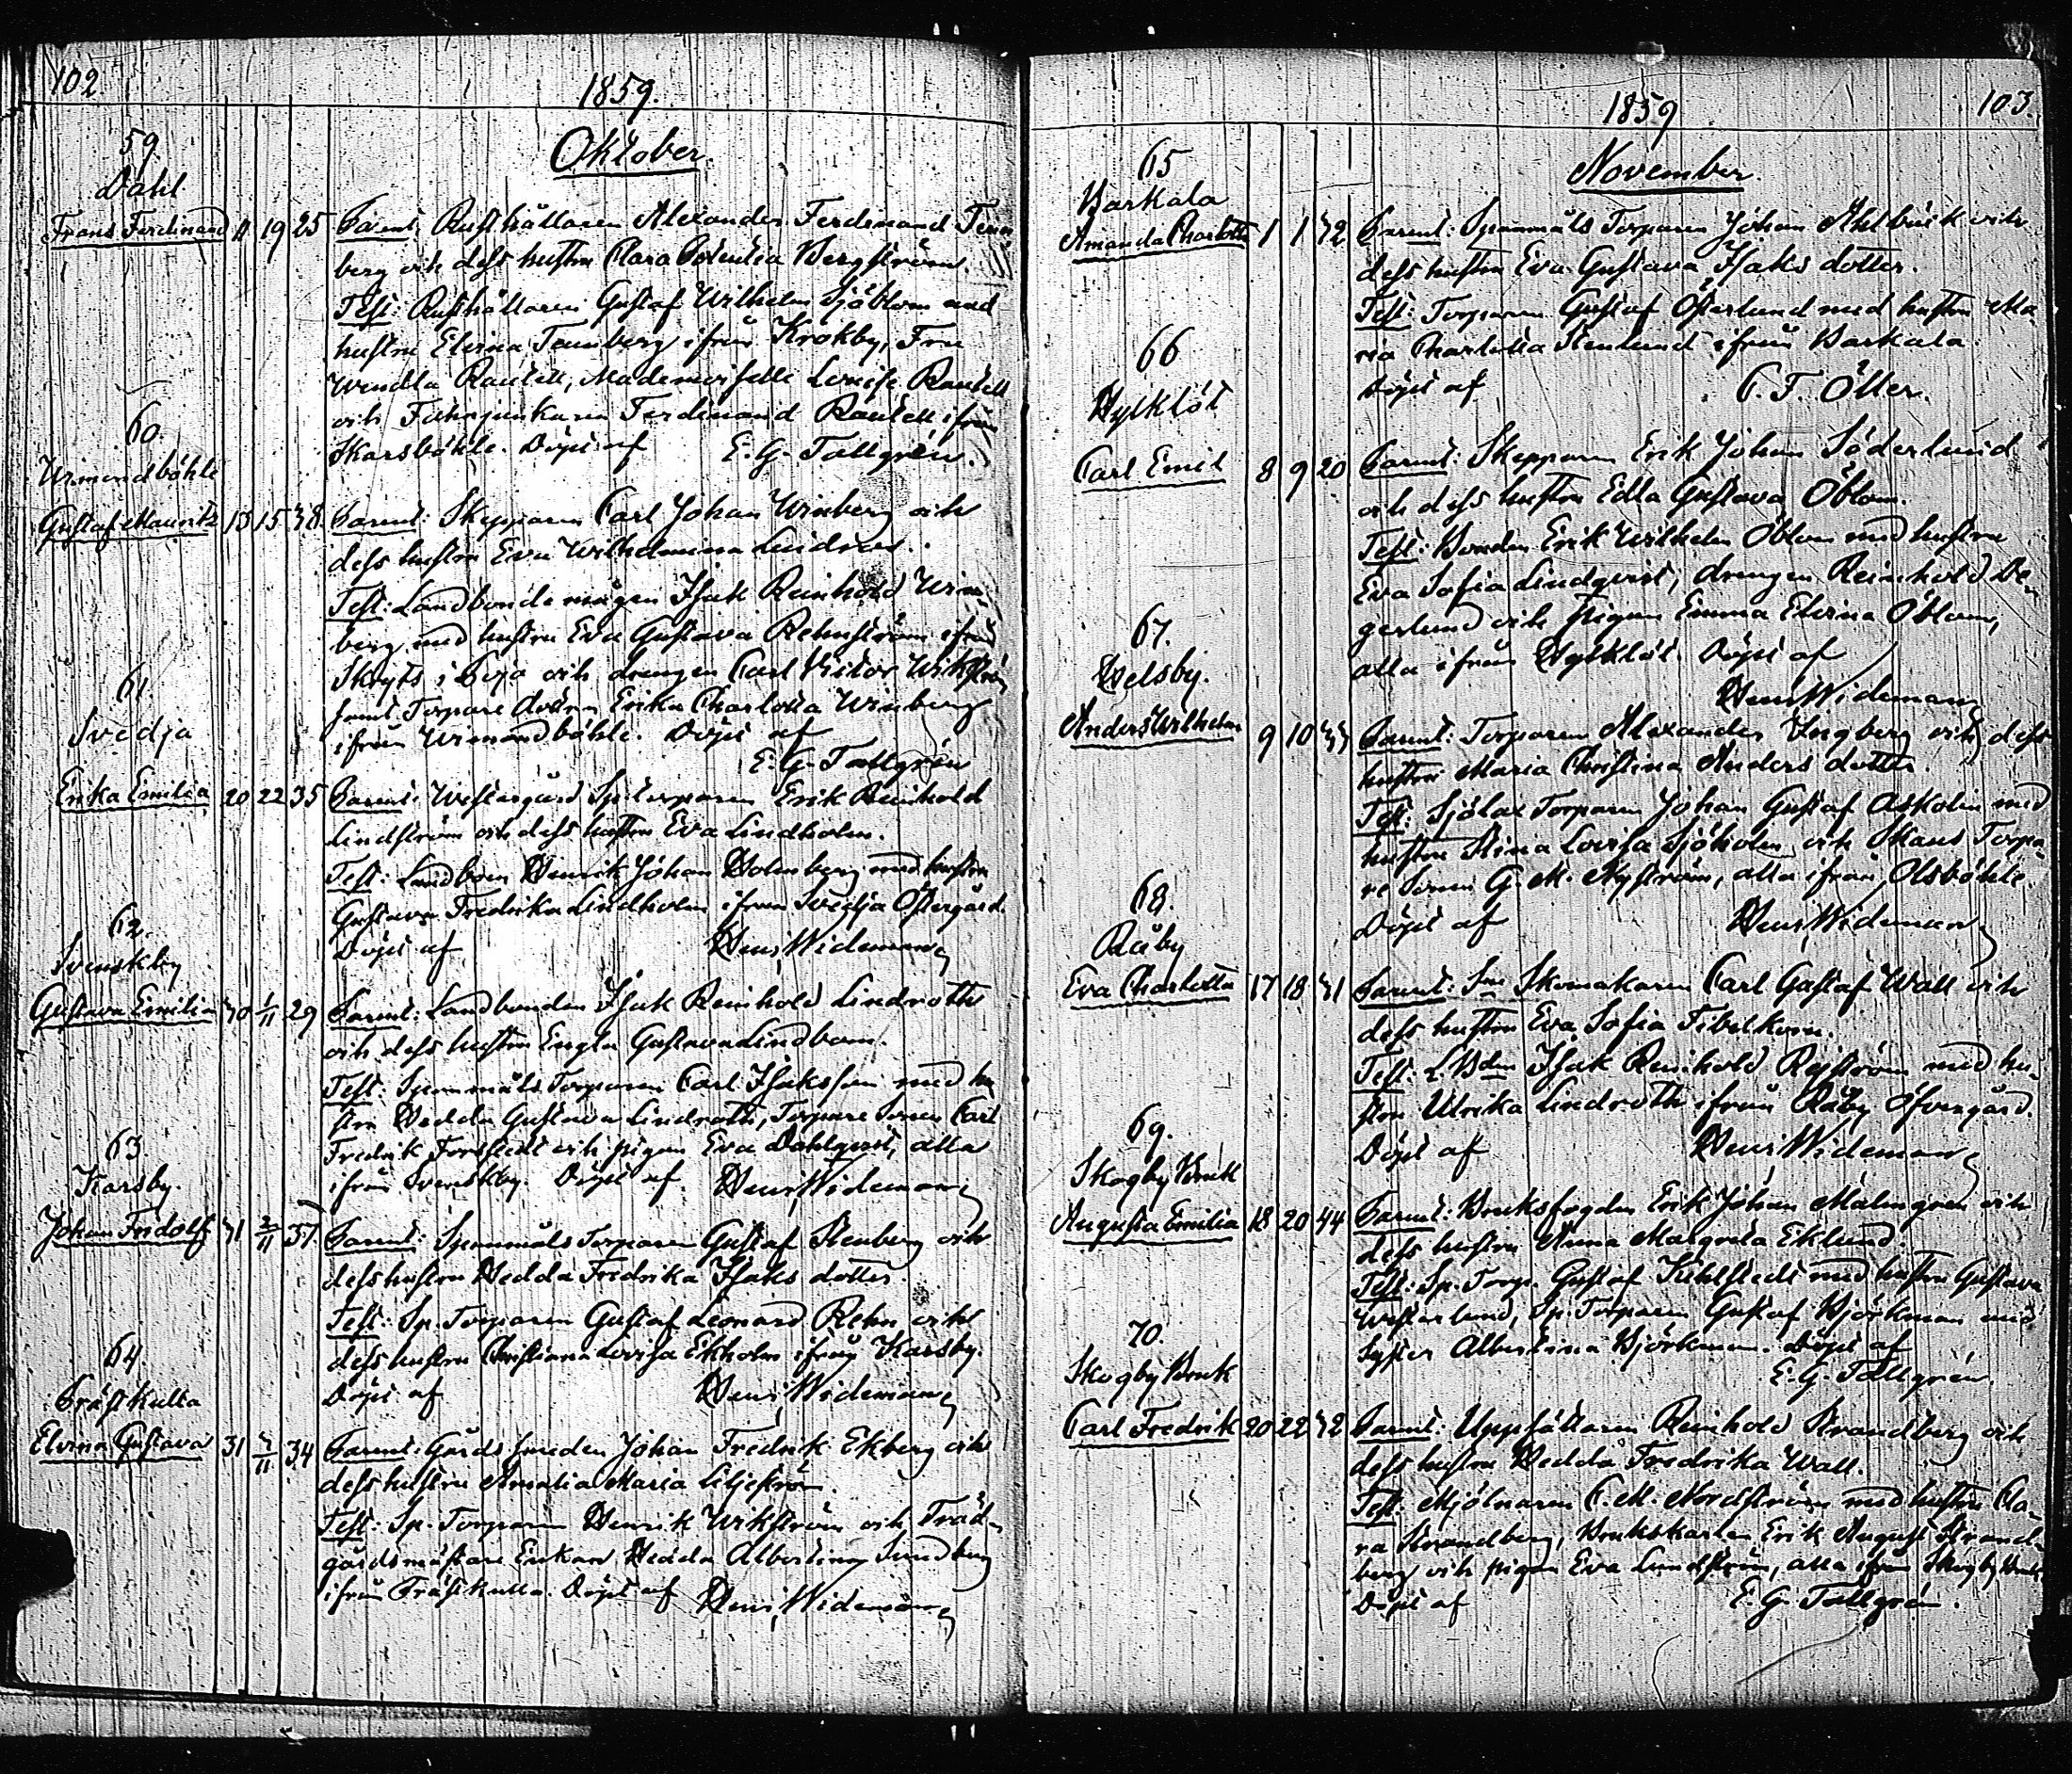 102.
1859.
Oktober.
59
Dahl
Frans Ferdinand 11 19 25 Parent: Rusthållaren Alexander Ferdinand Tenn
berg och dess hustru Clara Bergström.
Test: Rusthållaren Gustaf Wilhelm Sjöblom med
hustru Elvina Tennberg ifrån Krokby, Fru
Wendla Rautell, Mademoiselle Lovise Rautell
och Fahnjunkaren Ferdinand Rautell ifrån
Skarsböhle. Döpt af E. G. Tallgrén.
60.
Wimondböhle
Gustaf Mauritz 13 15 38 Parent: Skepparen Carl Johan Winberg och
dess hustru Eva Wilhelmina Lindroos.
Test: Landbonde mågen Isak Reinhold Win-
berg med hustru Eva Gustava Rehnström ifrån
Skogts i Bojo och drengen Carl Victor Wikström
samt Torpare Erika Charlotta Winberg
ifrån Wimondböhle. Döpt af
E. G. Tallgrén
61
Svedja
Erika Emilia 20 22 35 Parent: Westergård Sp: torparen Erik Reinhold
Lindström och dess hustru Eva Lindholm.
Test: Landboen Henrik Johan Holmberg med hustru
Gustava Fredrika Lindholm ifrån Svedja Östergård.
Döpt af Henr. Wideman
62.
Svenskby
Gustava Emilia 30 1/11 29 Parent: Landbonden Isak Reinhold Lindroth
och dess hustru Engla Gustava Lindbom.
Test: Spannmåls Torparen Carl Isaksson med hu
stru Hedda Gustava Lindroth, Torpare Sonen Carl
Fredrik Forsstedt och pigan Eva Dahlqvist, alla
ifrån Svenskby. Döpt af Henr. Wideman
63.
Karsby.
Johan Fridolf 31 2/11 37 Parent: Spannmåls Torparen Gustaf Stenberg och
dess hustru Hedda Fredrika Isaks dotter.
Test: Sp. Torparen Gustaf Leonard Rehn och
dess hustru Christiana Lovisa Ekholm ifrån Karsby.
Döpt af Henr. Wideman
64.
Träskulla
Elvina Gustava 31 3/11 34 Parent: Gårds smeden Johan Fredrik Ekberg och
dess hustru Amalia Maria Liljeström.
Test: Sp. Torparen Henrik Wikström och Träd-
gårdsmästare Enkan Hedda Albertina Sundberg
ifrån Träskulla. Döpt af Henr. Wideman
103.
1859
November
65
Barkala
Amanda Charlotta 1 1 32 Parent: Spannmåls Torparen Johan Ahlbäck och
dess hustru Eva Gustava Isaks dotter.
Test: Torparen Gustaf Österlund med hustru Ma-
ria Charlotta Stenlund ifrån Barkala.
Döpt af C. F. Öller.
66
Hylklöt
Carl Emil 8 9 20 Parent: Skepparen Erik Johan Söderlund
och dess hustru Edla Gustava Öblom.
Test: Bonden Erik Wilhelm Öblom med hustru
Eva Sofia Lindqvist, drengen Reinhold De-
gerlund och pigan Emma Elvina Öblom,
alla ifrån Hylklöt. Döpt af
Henr. Wideman
67.
Delsby.
Anders Wilhelm 9 10 33 Parent: Torparen Alexander Ingberg och dess
hustru Maria Christina Anders dotter.
Test: Sjölax Torparen Johan Gustaf Askolin med
hustru Stina Lovisa Sjöholm och Skans Torpa-
re Sonen G. M. Nyström, alla ifrån Olsböhle
Döpt af Henr. Wideman
68.
Råby
Eva Charlotta 17 18 31 Parent: Skomakaren Carl Gustaf Wall och
dess hustru Eva Sofia Fibelkorn.
Test: LBden Isak Reinhold Rejström med hu-
stru Ulrika Lindroth ifrån Råby Öfvergård.
Döpt af Henr. Wideman
69.
Skogby Bruk
Augusta Emilia 18 20 44 Parent: Bruksfogden Erik Johan Malmgren och
dess hustru Anna Margreta Eklund.
Test: Sp. Torp. Gustaf Kihlstedt med hustru Gustava
Westerlund, Sp. Torparen Gustaf Björkman med
syster Albertina Björkman. Döpt af
E. G. Tallgrén.
70.
Skogby Bruk
Carl Fredrik 20 22 32 Parent: Uppsättaren Reinhold Strandberg och
dess hustru Hedda Fredrika Wall.
Test: Mjölnaren C. M. Nordström med hustru Cla-
ra Strandberg, Brukskarlen Erik August Strand-
berg och pigan Eva Lundström, alla ifrån Skogby Bruk.
Döpt af E. G. Tallgrén.